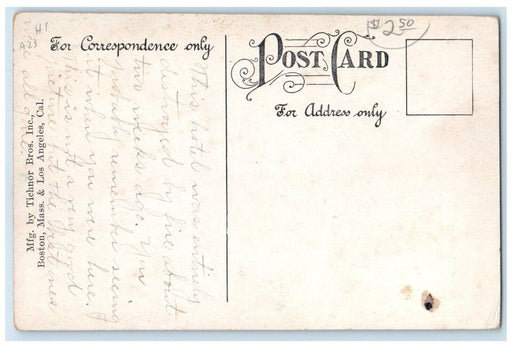 H1
A23
$2.50
For Correspondence only
POST CARD
For Address only
Mfg. by Tichnor Bros. Inc.,
Boston, Mass. & Los Angeles, Cal.
This hotel was entirely
destroyed by fire about
two weeks ago. You
probably remember seeing
it when you were here,
This is not a very good
picture but the best ones
are all gone.